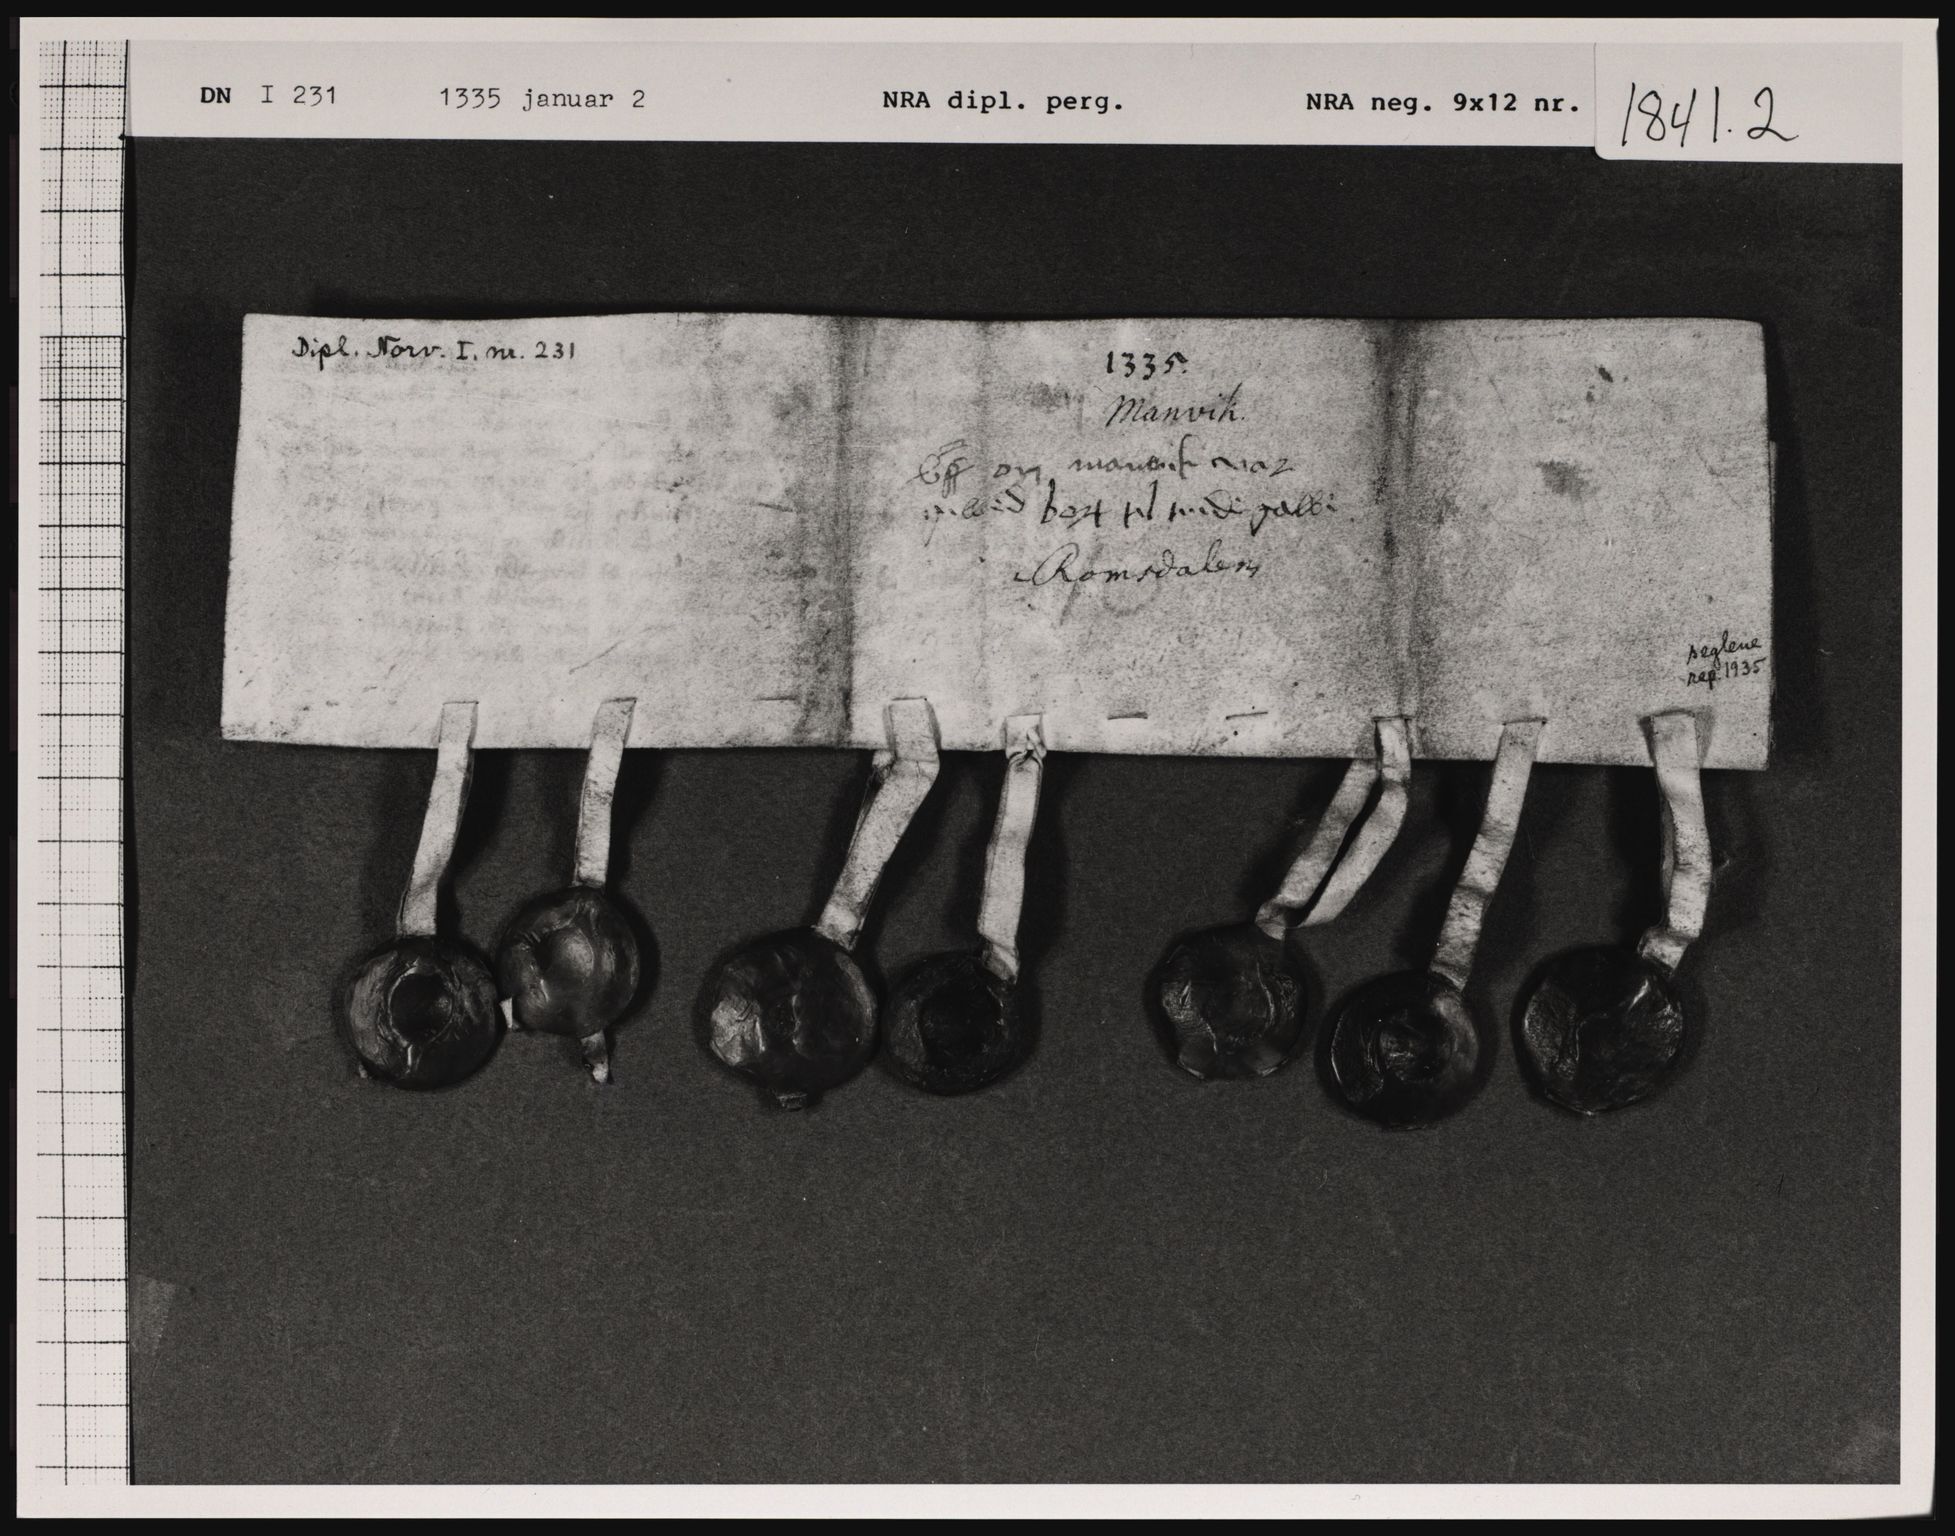 DN I 231 1335 januar 2 NRA dipl. perg. NRA neg. 9x12 nr. 1841.2
Dipl. Norv. I. nr. 231
1335.
Manvik.
om manvik
bort til
Romsdalen
seglene
rep. 1935